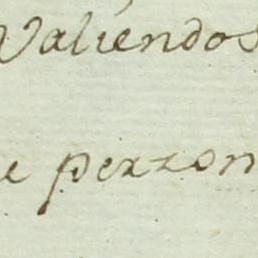 Valiendos
e perzon